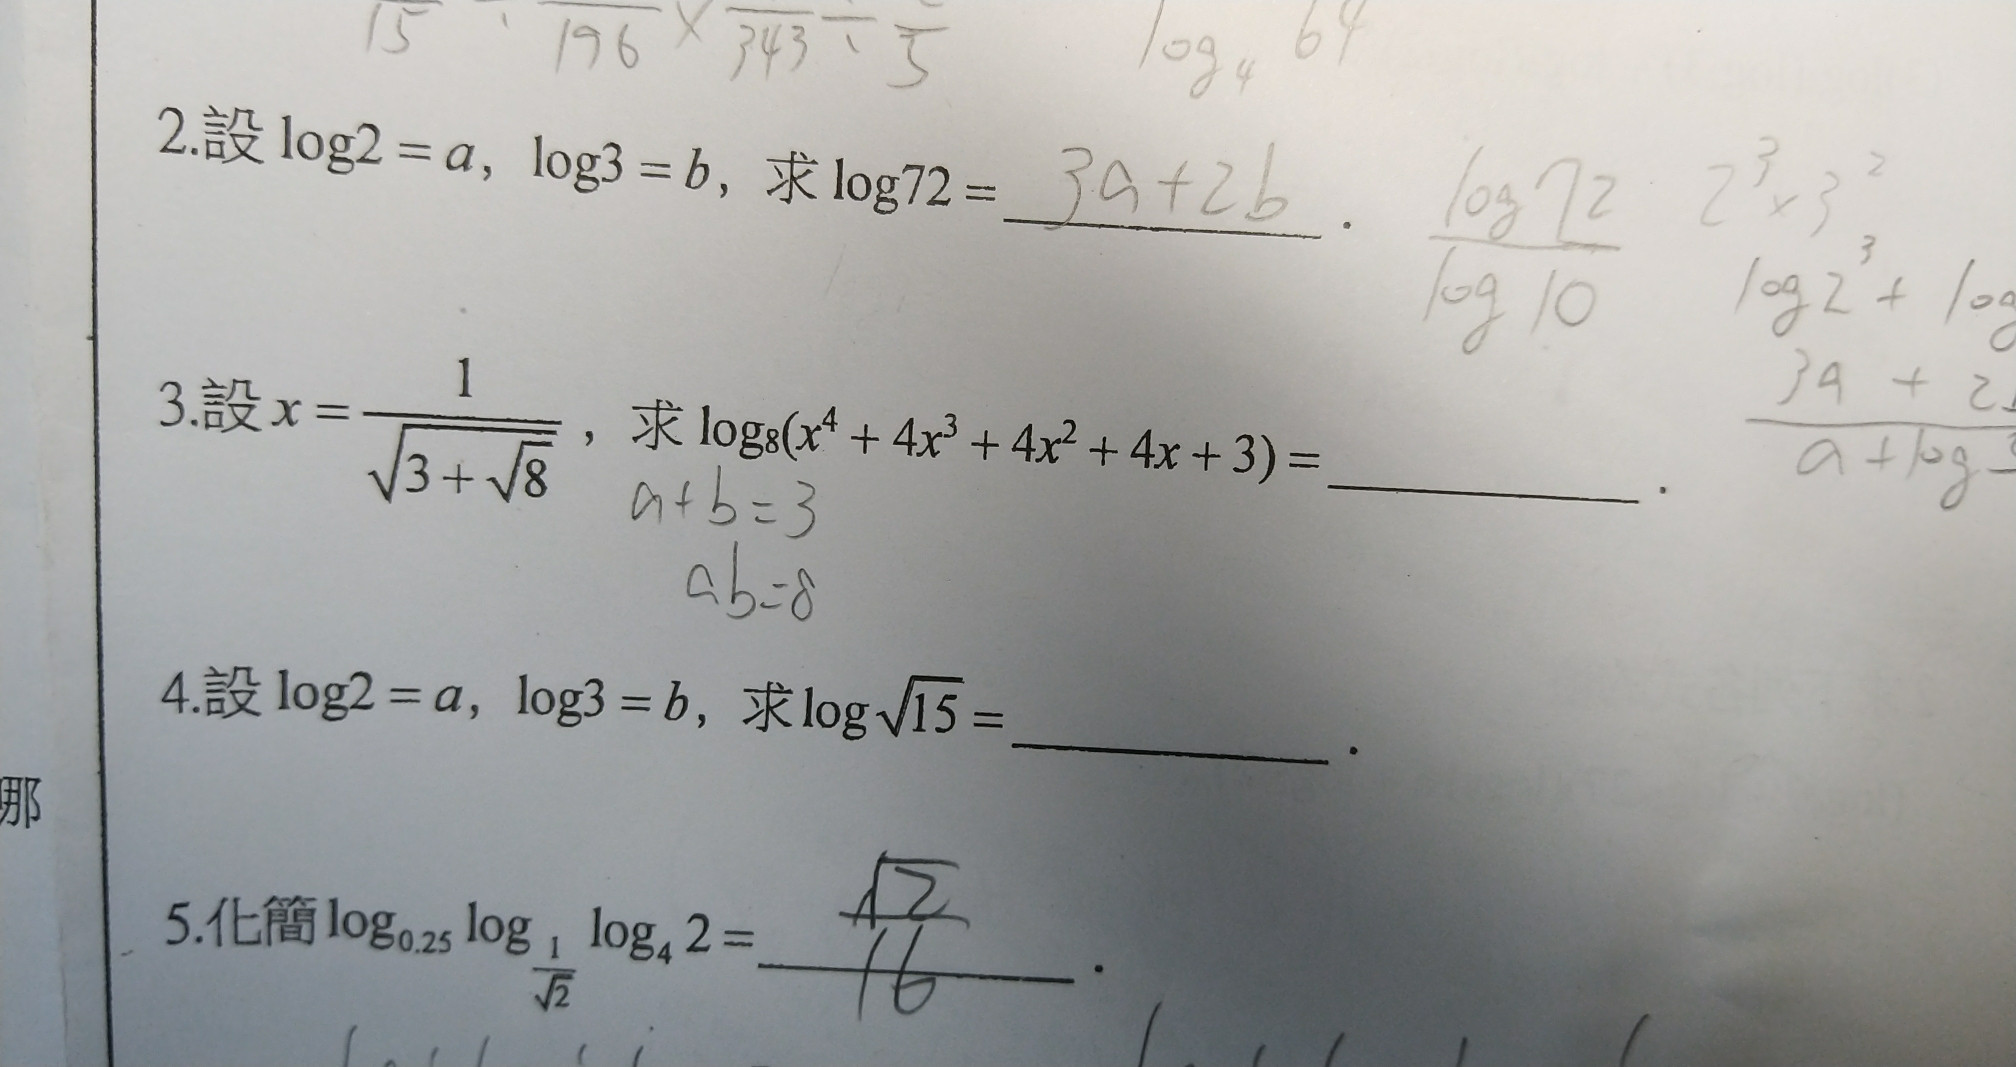 15 196 × 343 ÷ 5
log₄ 64
2.設 log2 = a，log3 = b，求 log72 = 3a+2b .
log 72 / log 10
2³×3²
log2³ + log
3a + 2
a + log
3.設 x = 1/√(3+√8)，求 log₈(x⁴ + 4x³ + 4x² + 4x + 3) = ________ .
a+b=3
ab=8
4.設 log2 = a，log3 = b，求 log√15 = ________ .
哪
5.化簡 log₀.₂₅ log_(1/√2) log₄ 2 = √2/16 .